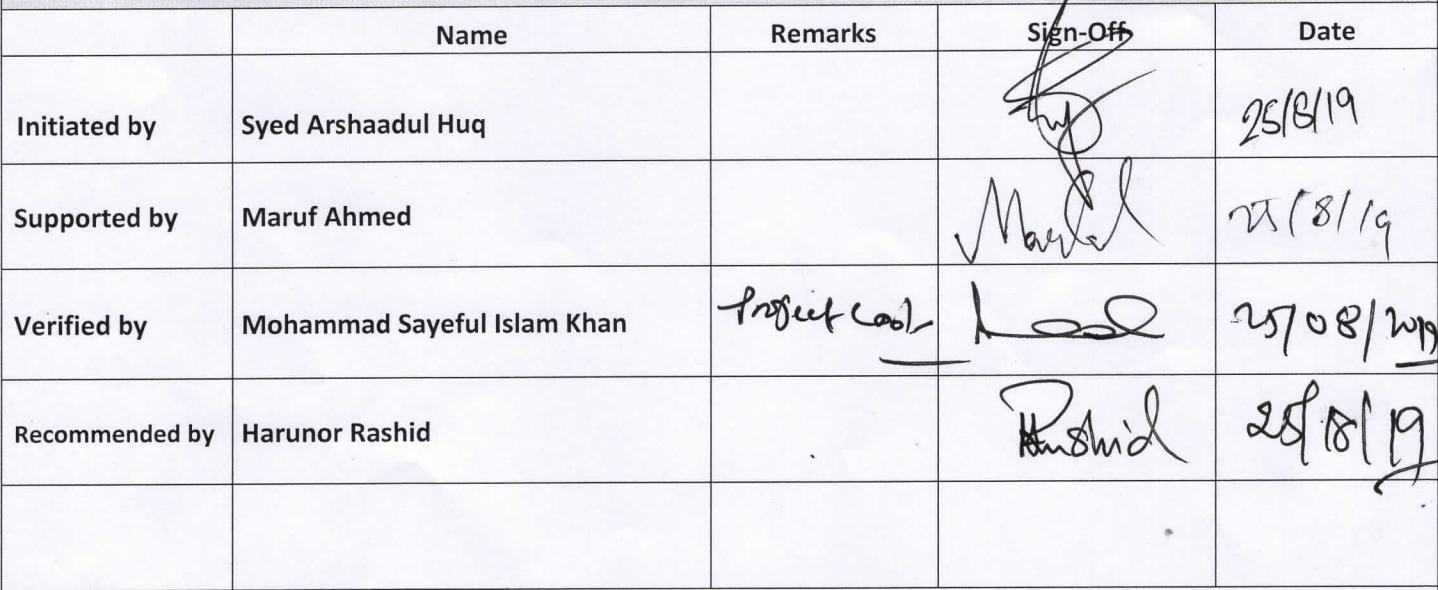 Name Remarks Sign-Off Date
Initiated by Syed Arshaadul Huq 25/8/19
Supported by Maruf Ahmed 25/8/19
Verified by Mohammad Sayeful Islam Khan Project 25/08/2019
Recommended by Harunor Rashid Rashid 25/8/19